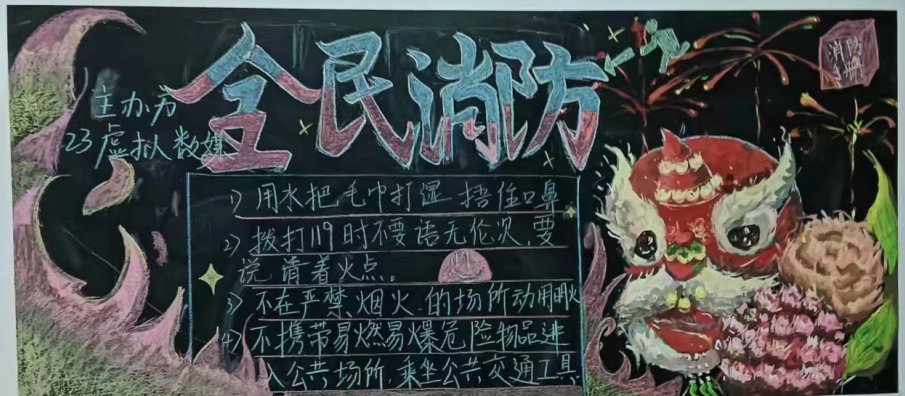 全民消防
主办方
23虚拟数媒
消防
手册
1) 用水把毛巾打湿 捂住口鼻
2) 拨打119时不要语无伦次,要
说清着火点。
3) 不在严禁烟火的场所动用明火
4) 不携带易燃易爆危险物品进
入公共场所,乘坐公共交通工具